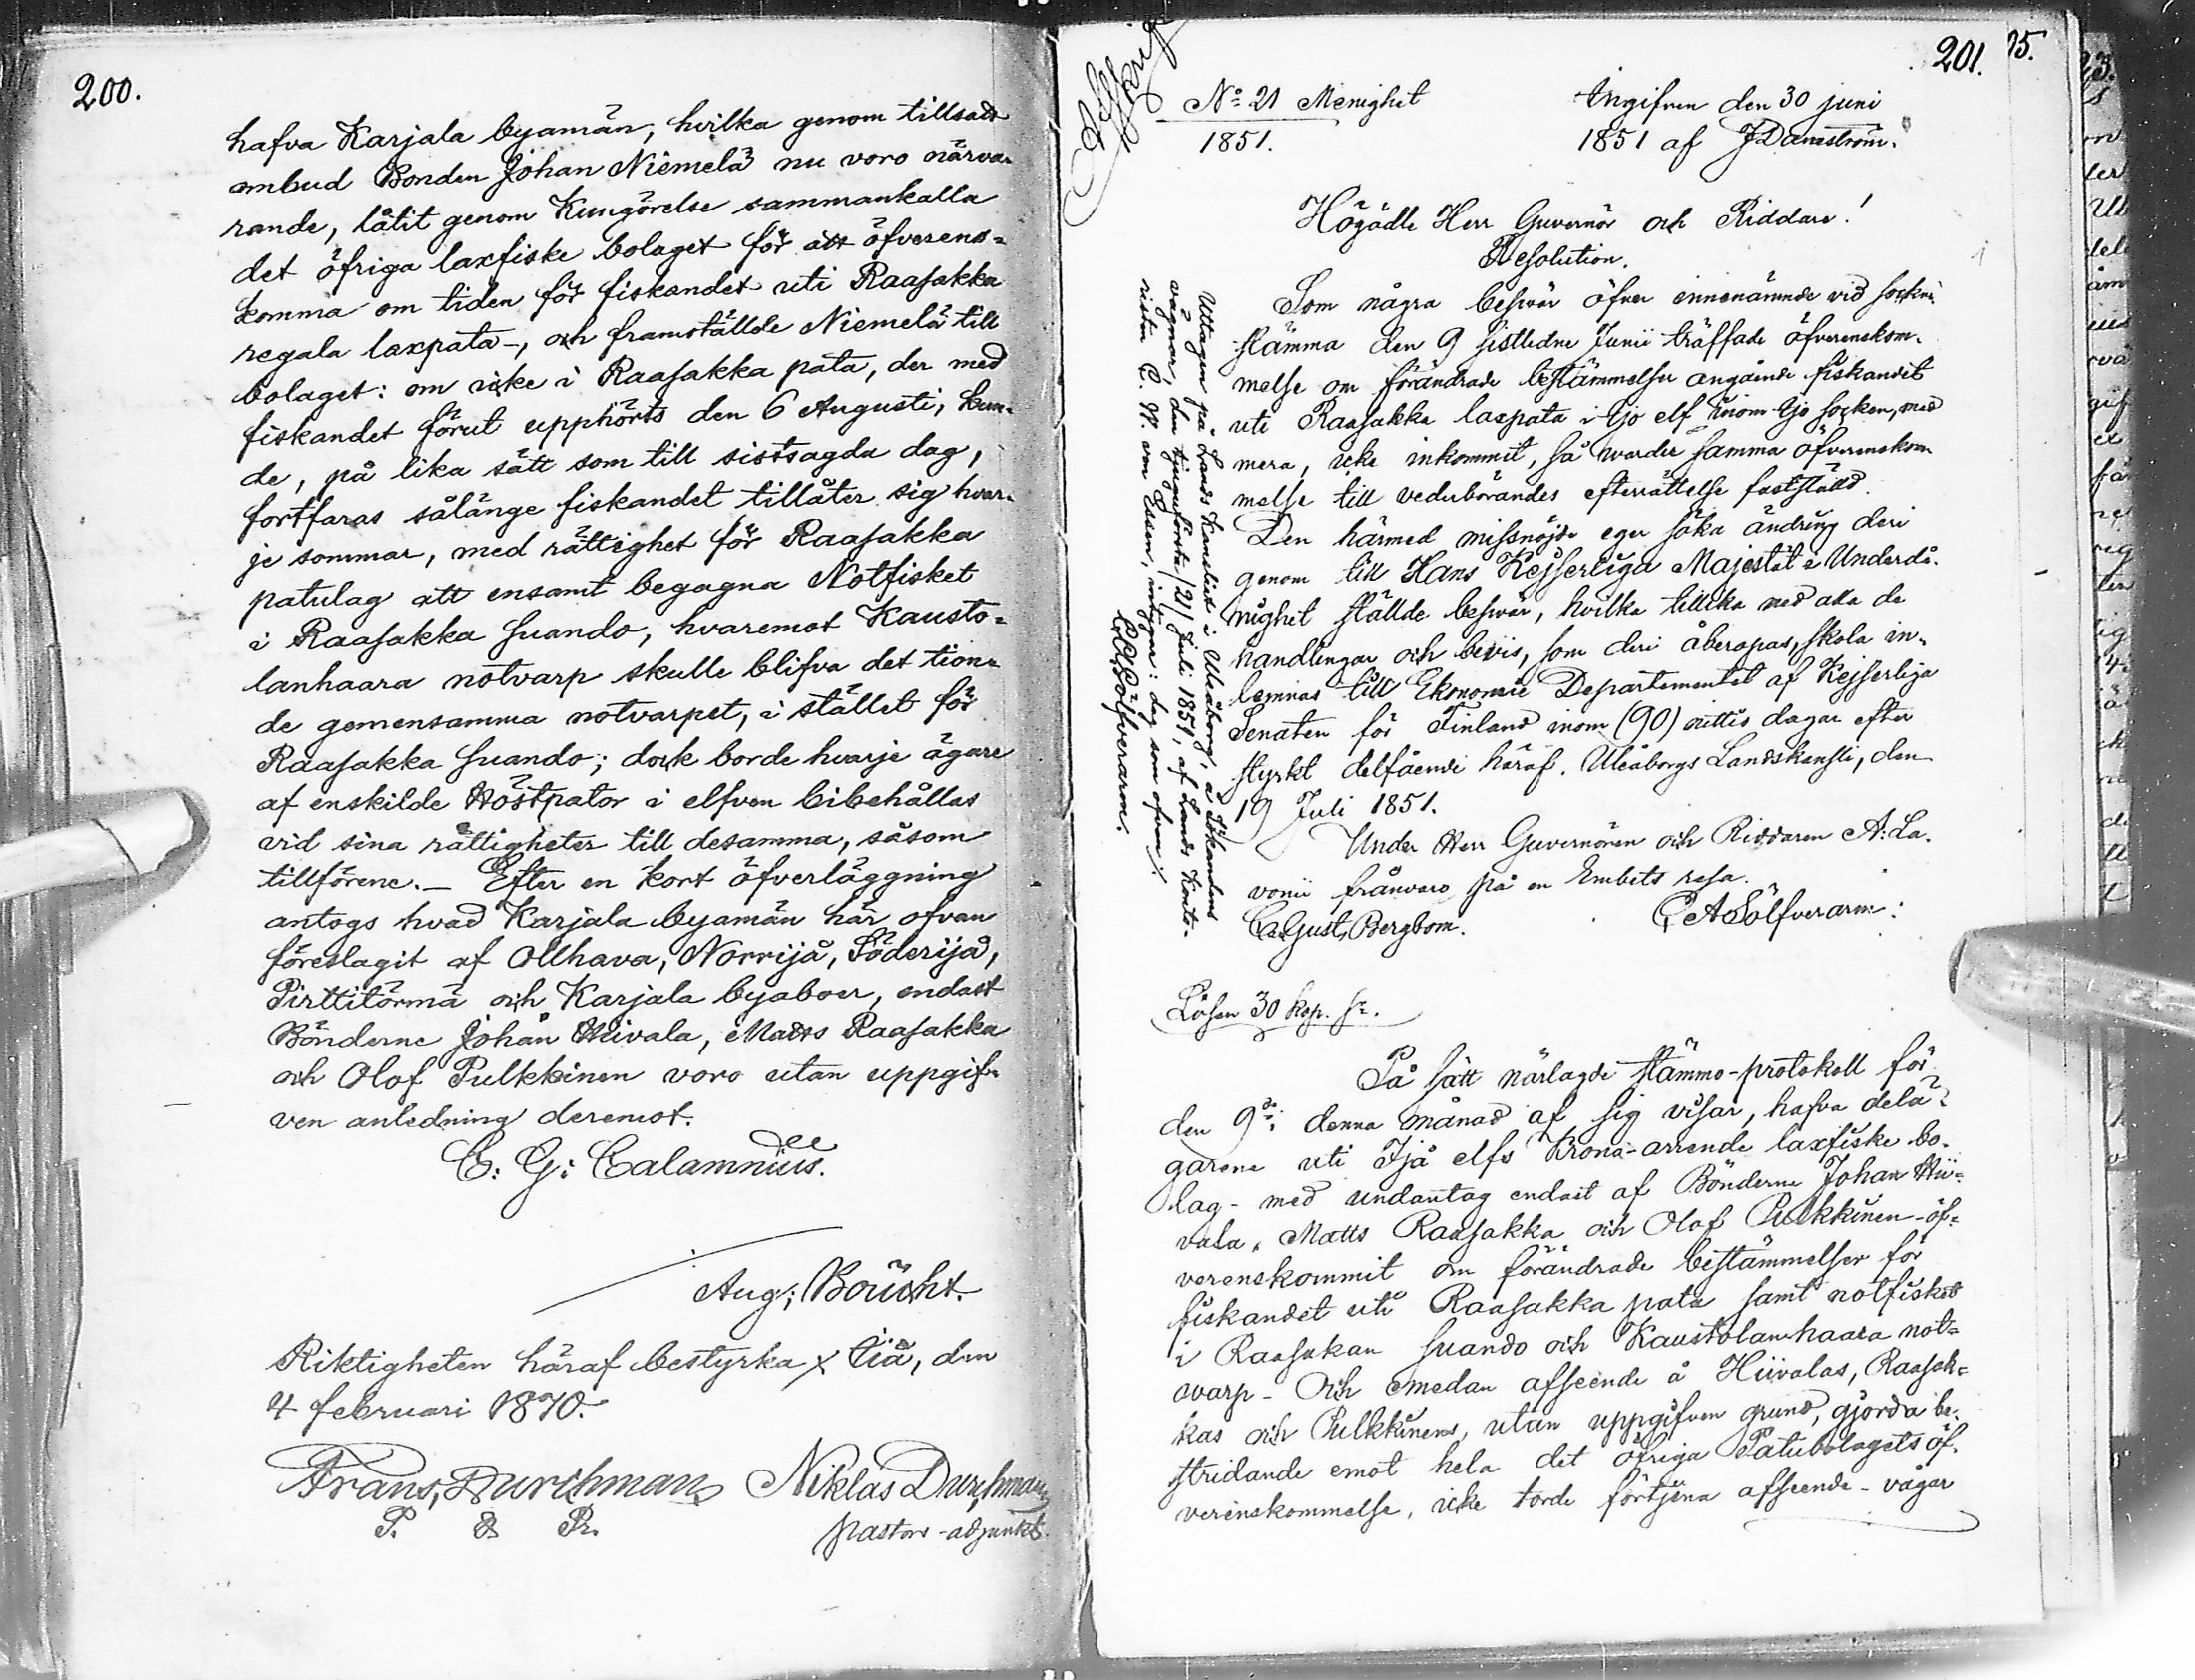 200.
hafva Karjala byamän, hvilka genom tillsatt
ombud Bonden Johan Niemelä nu voro närva-
rande, låtit genom Kungörelse sammankalla
det öfriga laxfiske bolaget för att öfverens-
komma om tiden för fiskandet uti Raasakka
regala laxpata-, och framställde Niemelä till
bolaget: om icke i Raasakka pata, der med
fiskandet förut upphörts den 6 Augusti, kun-
de, på lika sätt som till sistsagda dag,
fortfaras sålänge fiskandet tillåter sig hvar-
je sommar, med rättighet för Raasakka
patulag att ensamt begagna Notfisket
i Raasakka Suando, hvaremot Kausto-
lanhaara notvarp skulle blifva det tion-
de gemensamma notvarpet, i stället för
Raasakka Suando; dock borde hvarje ägare
af enskilde Höstpator i elfven bibehållas
vid sina rättigheter till desamma, såsom
tillförene.- Efter en kort öfverläggning
antogs hvad Karjala byamän här ofvan
föreslagit af Olhava, Norrijå, Söderijå,
Pirttitörmä och Karjala byaboer, endast
Bönderne Johan Hiivala, Matts Raasakka
och Olof Pulkkinen voro utan uppgif-
ven anledning deremot.
C: G: Calamniüs.
Aug; Boücht.
Riktigheten häraf bestyrka x Iiå, den
4 februari 1870.
Frans, Durchman Niklas Durchman
P. & Pr. pastors-adjunkt.
201.
15.
Afskrift
No 21 Menighet Ingifven den 30 juni
1851. 1851 af J Danström.
Högädle Herr Guvernör och Riddare!
Resolution.
Som några besvär öfver innenämnde vid socken
stämma den 9 sistledne Junii träffade öfverenskom-
melse om förändrade bestämmelser angående fiskandet
uti Raasakka laxpata i Ijo elf inom Ijo socken, med
mera, icke inkommit, så warder samma öfverenskom
melse till vederbörandes efterrättelse fastställd.
Den härmed missnöjde eger söka ändring deri
genom till Hans Kejserliga Majestät i Underdå-
nighet ställde besvär, hvilka tillika med alla de
handlingar och bevis, som deri åberopas, skola in-
lemnas till Ekonomie Departementet af Kejserliga
Senaten för Finland inom (90) nittio dagar efter
styrkt delfående häraf. Uleåborgs Landskansli, den
19 Juli 1851.
Under Herr Guvernören och Riddaren A: La-
vonii frånvaro på en Embets resa.
C A Sölfverarm:
C. Gust. Bergbom.
Uttagen på Lands Kansliet i Uleåborg, å Sökandens
vägnar, den tjuguförsta /21/ Juli 1851, af Lands Konto-
risten C. W. von Essen, intygar: dag som ofvan;
C A Sölfverarm.
Lösen 30 kop. Sr.
På sätt närlagde stämmo-protokoll för
den 9de denna månad af sig visar, hafva delä-
garene uti Ijå elfs Krono-arrende laxfiske bo-
lag- med undantag endast af Bönderne Johan Hii-
vala, Matts Raasakka och Olof Pulkkinen -öf-
verenskommit om förändrade bestämmelser för
fiskandet uti Raasakka pata samt notfisket
i Raasakan Suando och Kaustolanhaara not-
varp- Och emedan afseende å Hiivalas, Raasak-
kas och Pulkkinens, utan uppgifven grund, gjorda be-
stridande emot hela det öfriga Patubolagets öf-
verenskommelse, icke torde förtjena afseende- vågar